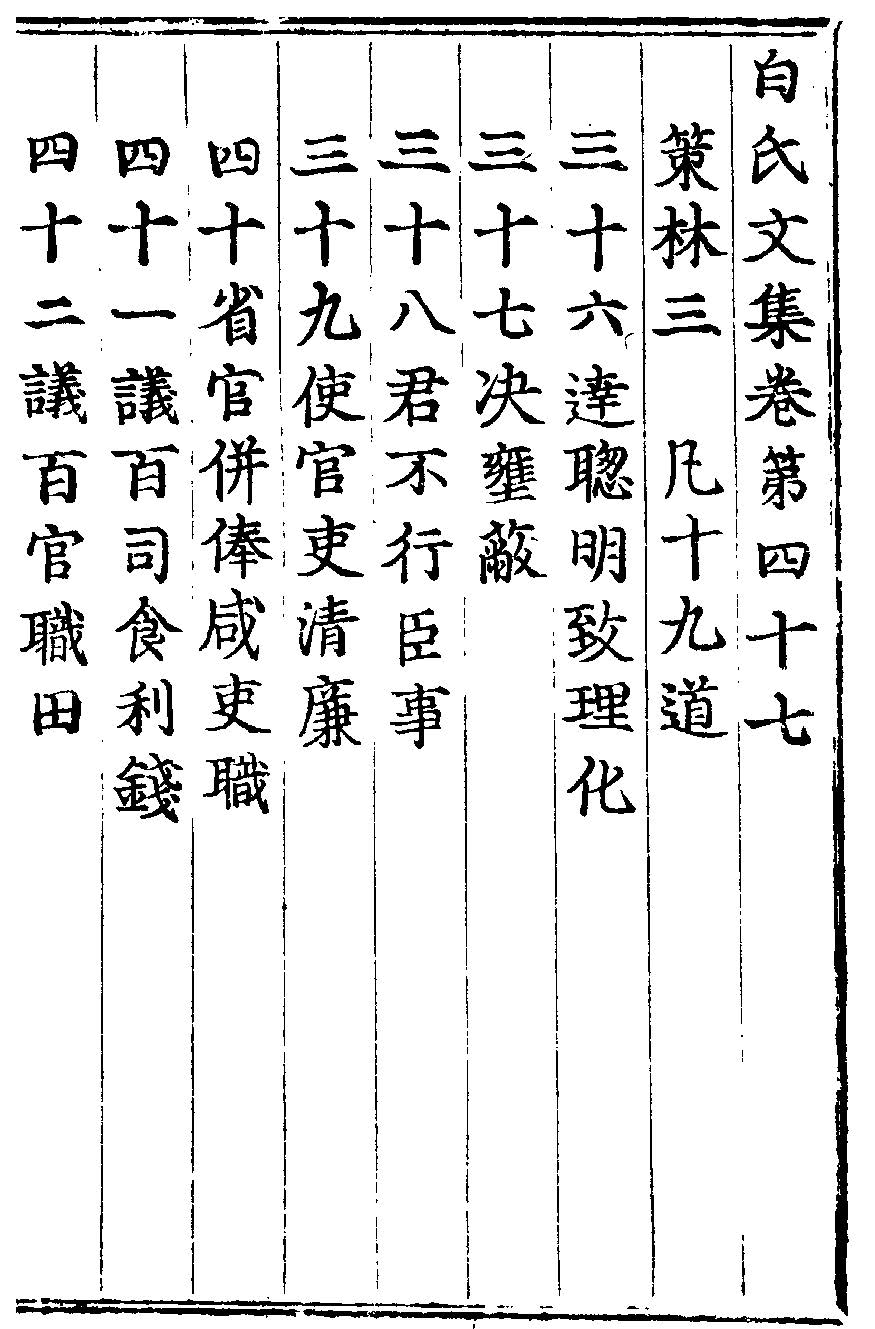 白氏文集卷第四十七
策林三　凡十九道
三十六達聰明致理化
三十七决壅蔽
三十八君不行臣事
三十九使官吏清廉
四十省官併俸咸吏職
四十一議百司食利錢
四十二議百官職田